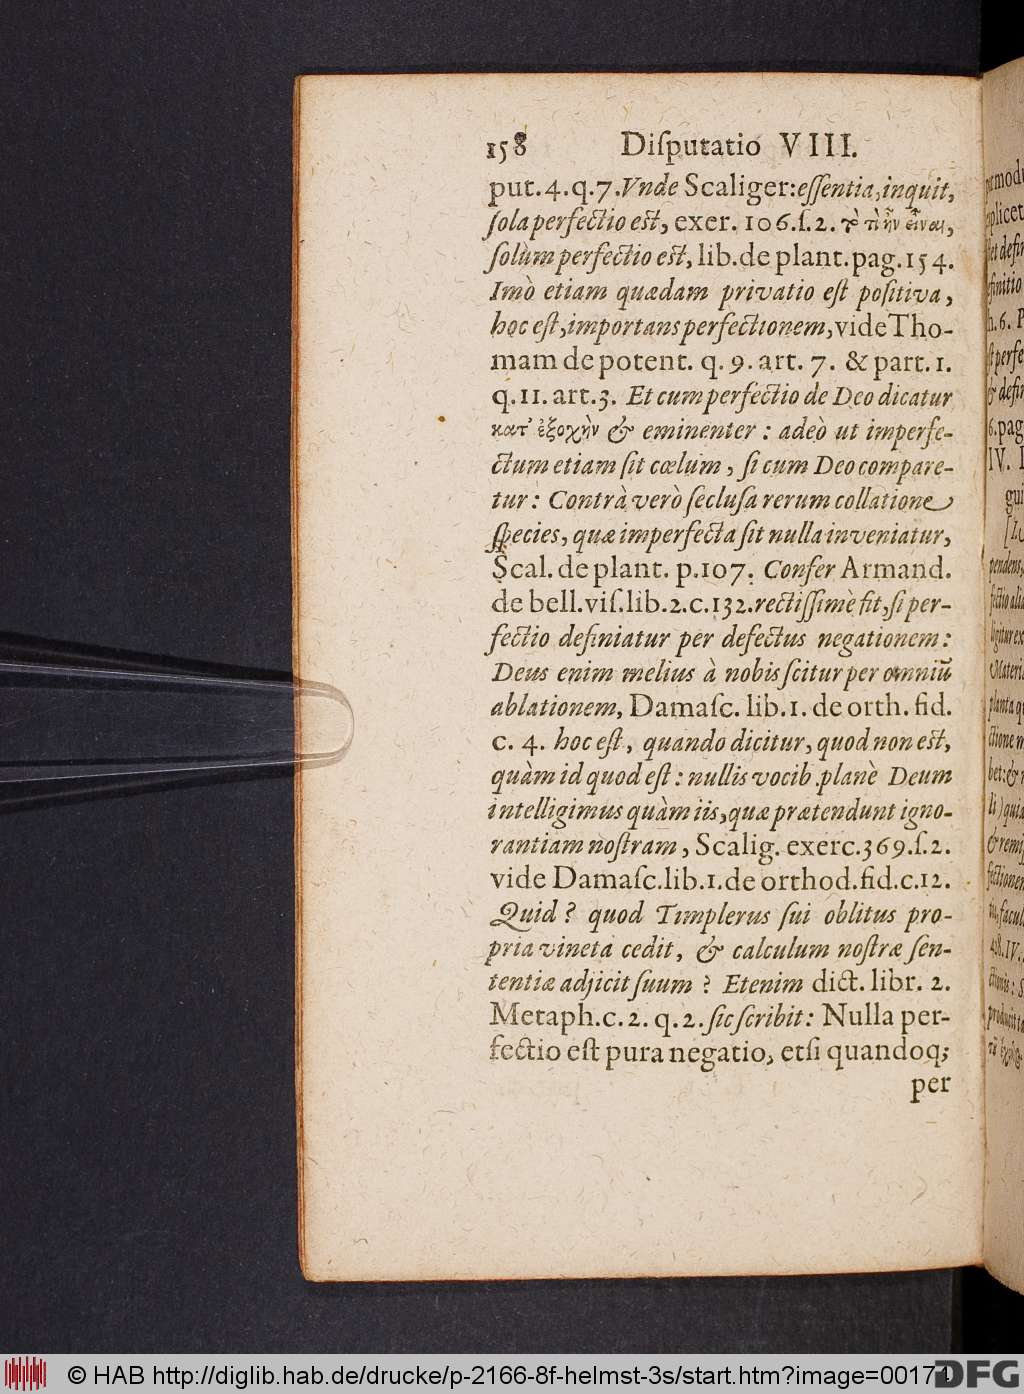 158 Diſputatio VIII.
put. 4. q. 7. Vnde Scaliger: eſſentia, inquit,
ſola perfectio eſt, exer. 106. ſ. 2. τὸ τὶ ἦν εἶναι,
ſolùm perfectio eſt, lib. de plant. pag. 154.
Imò etiam quædam privatio eſt poſitiva,
hoc eſt, importans perfectionem, vide Tho-
mam de potent. q. 9. art. 7. & part. 1.
q. 11. art. 3. Et cum perfectio de Deo dicatur
κατ' ἐξοχὴν & eminenter : adeò ut imperfe-
ctum etiam ſit cœlum, ſi cum Deo compare-
tur : Contrà verò ſecluſa rerum collatione
ſpecies, quæ imperfecta ſit nulla inveniatur,
Scal. de plant. p. 107. Confer Armand.
de bell. viſ. lib. 2. c. 132. rectiſſimè fit, ſi per-
fectio definiatur per defectus negationem :
Deus enim melius à nobis ſcitur per omniū
ablationem, Damaſc. lib. 1. de orth. fid.
c. 4. hoc eſt, quando dicitur, quod non eſt,
quàm id quod eſt : nullis vocib. planè Deum
intelligimus quàm iis, quæ prætendunt igno-
rantiam noſtram, Scalig. exerc. 369. ſ. 2.
vide Damaſc. lib. 1. de orthod. fid. c. 12.
Quid ? quod Timplerus ſui oblitus pro-
pria vineta cedit, & calculum noſtræ ſen-
tentiæ adjicit ſuum ? Etenim dict. libr. 2.
Metaph. c. 2. q. 2. ſic ſcribit : Nulla per-
fectio eſt pura negatio, etſi quandoq;
per
© HAB http://diglib.hab.de/drucke/p-2166-8f-helmst-3s/start.htm?image=00174
DFG